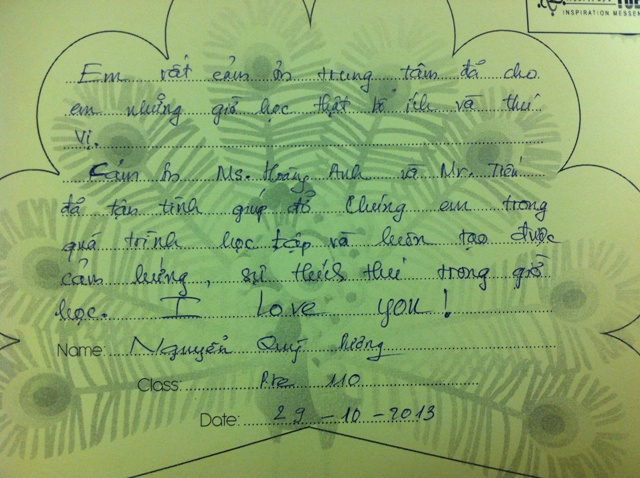 INSPIRATION MESSE
Em rất cảm ơn trung tâm đã cho
em những giờ học thật bổ ích và thú
vị.
Cảm ơn Ms. Hoàng Anh và Mr. Tiến
đã tận tình giúp đỡ chúng em trong
quá trình học tập và luôn tạo được
cảm hướng, sự thích thú trong giờ
học. I Love you!
Name: Nguyễn Quý Hương
Class: Pre 110
Date: 29-10-2013